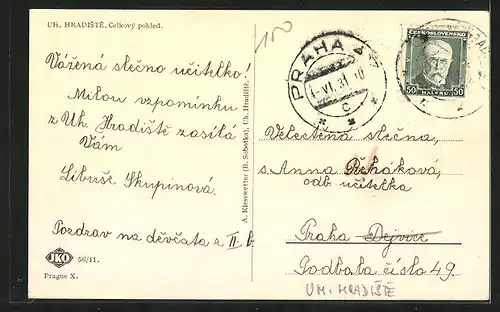 UH. HRADIŠTĚ. Celkový pohled.
150
Vážená slečno učitelko!
Milou vzpomínku
z Uh. Hradiště zasílá
Vám
Libuše Skupinová.
Pozdrav na děvčata z II. b.
JKO
56/11.
Prague X.
A. Kiesswetter (B. Sobotka), Uh. Hradiště.
PRAHA
VI. 31
C
ČESKOSLOVENSKO
50 HALÉŘŮ 50
Velectěná slečna,
s. Anna Řeháková,
odb. učitelka
Praha Dejvice
Podbaba číslo 49.
UH. HRADIŠTĚ